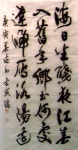 海日生殘夜江春
入舊年鄉書何處
達歸雁洛陽邊